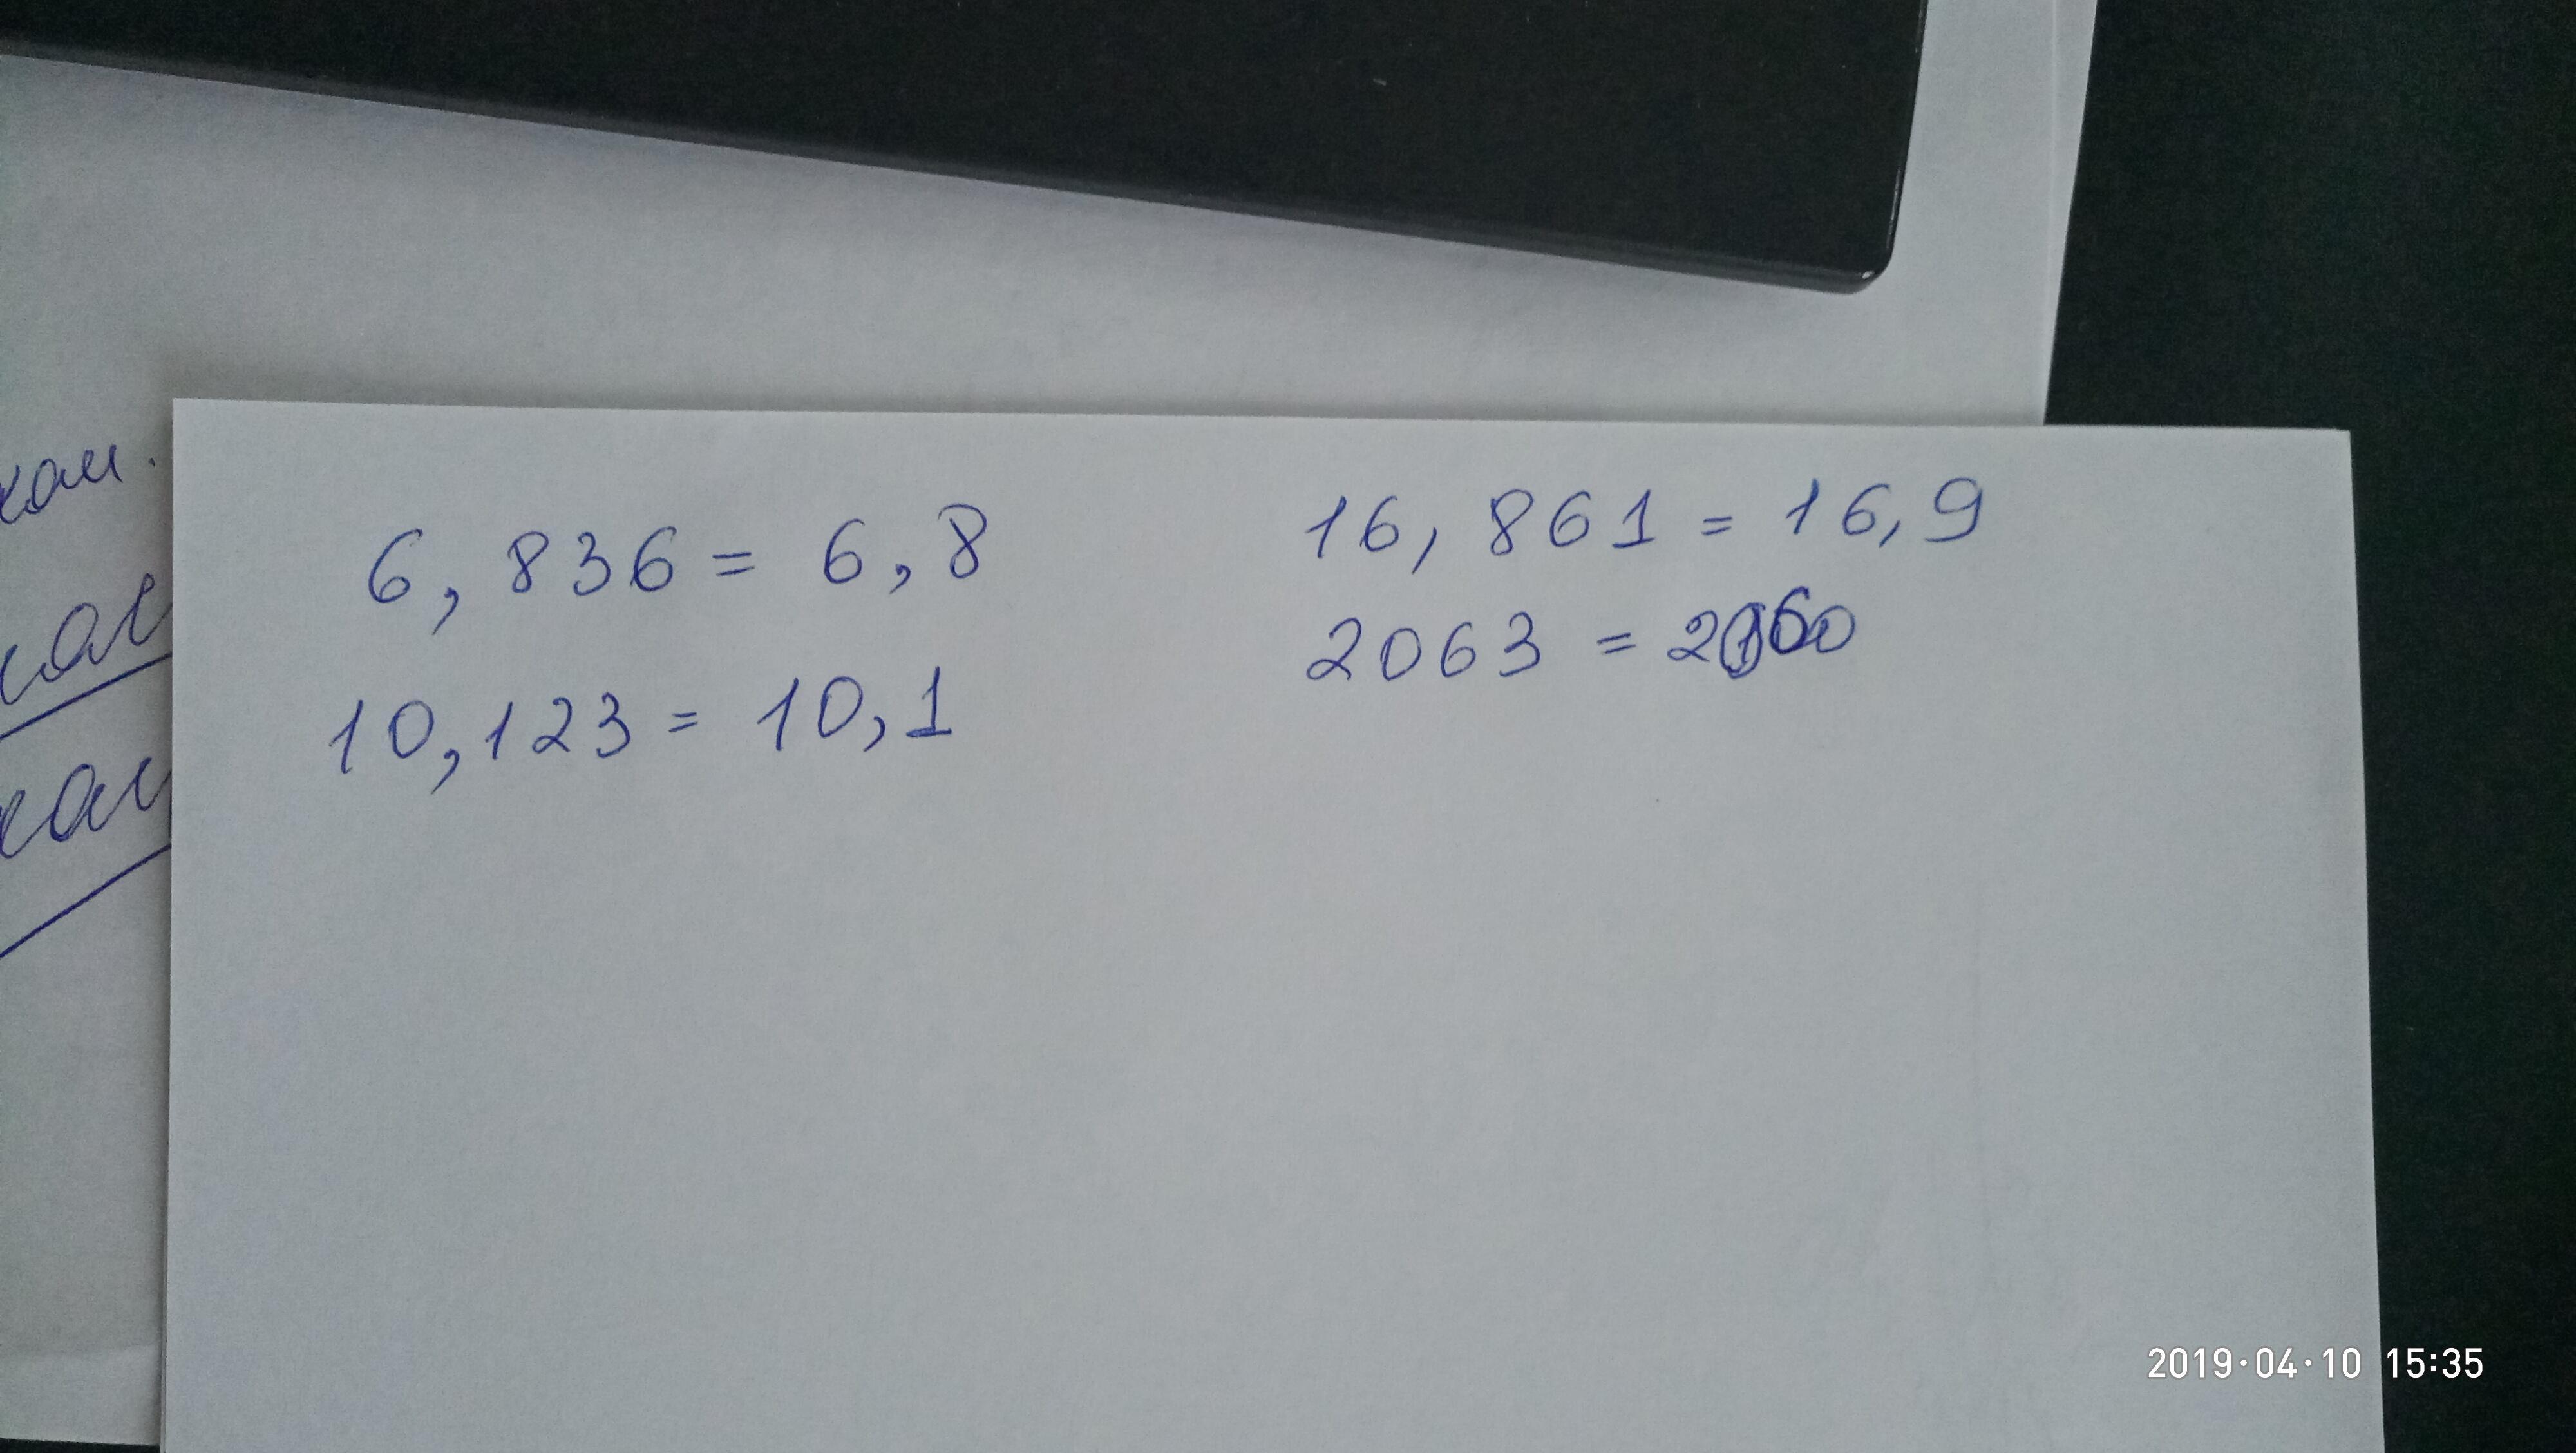 6,836 = 6,8
10,123 = 10,1
16,861 = 16,9
2063 = 2060
2019·04·10 15:35